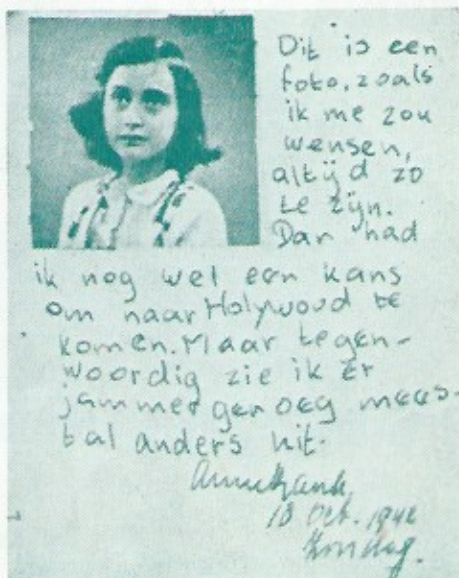 Dit is een
foto, zoals
ik me zou
wensen,
altijd zo
te zijn.
Dan had
ik nog wel een kans
om naar Holywood te
komen. Maar tegen-
woordig zie ik er
jammer genoeg mees-
tal anders uit.
Annefrank,
18 Oct. 1942
Zondag.